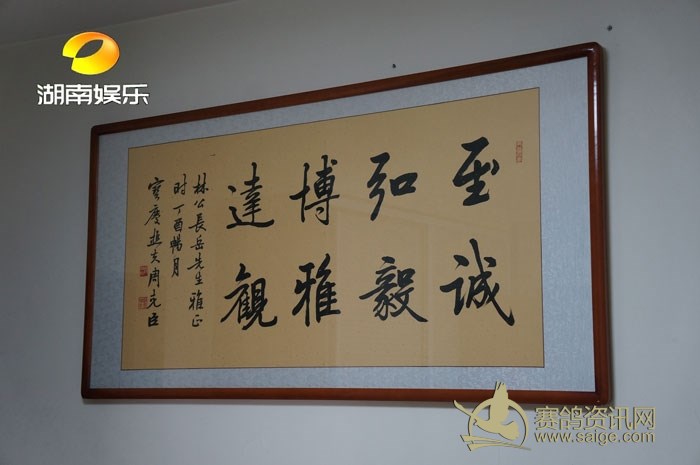 湖南娱乐
至诚
弘毅
博雅
達觀
林公長岳先生雅正
时丁酉暢月
寶慶
赛鸽资讯网
www.saige.com